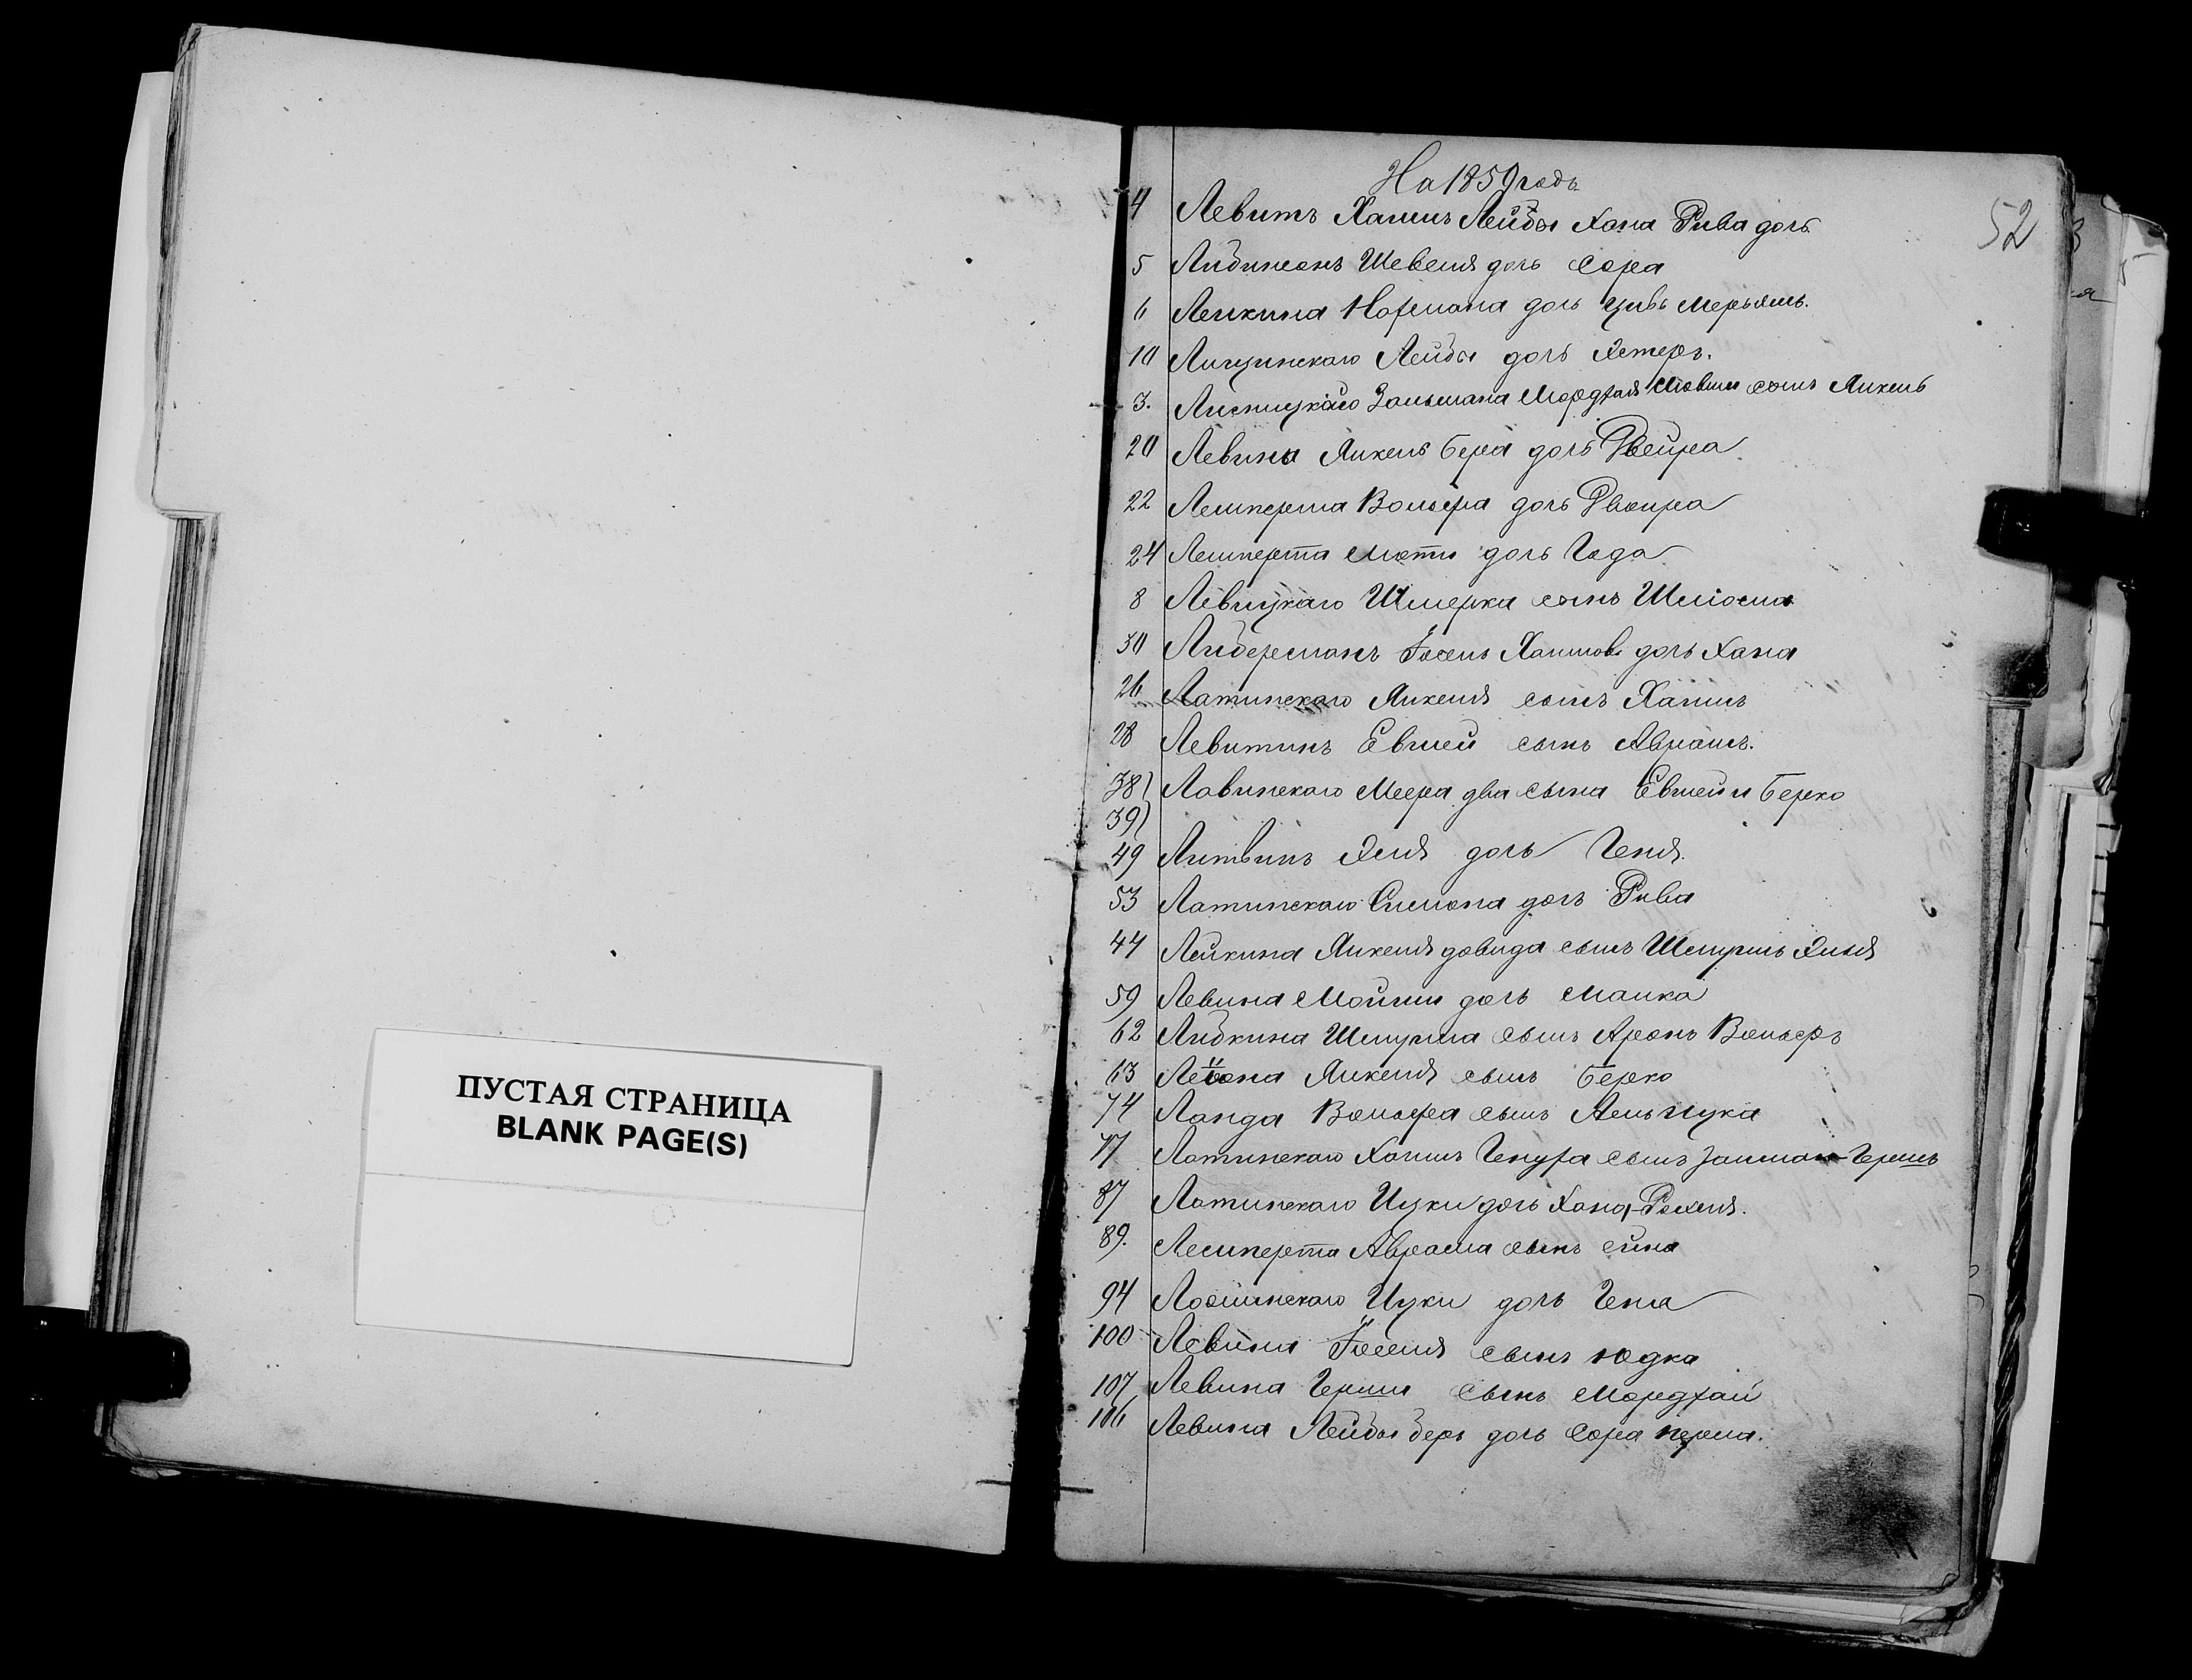 ПУСТАЯ СТРАНИЦА
BLANK PAGE(S)
52
На 1859 годъ
4 Левитъ Хаимъ Лейбы Хана Рива дочь
5 Либинсонъ Шевеля дочь Сора
6 Лейкина Нохмана дочь Цивь Мерьямъ.
10 Лигуинскаго Лейбы дочь Эстеръ.
3. Лисницкаго Зальмана Мордхая Мовши сынъ Янкель
20 Левина Янкель Бера дочь Двейра
22 Лемперта Вольфа дочь Двойра
24 Лемперта Мотки дочь Года
8 Левицкаго Шмерка сынъ Шліома
30 Либерманъ Іосель Хаимовъ дочь Хана
26 Латинскаго Янкеля сынъ Хаимъ
28 Левитинъ Евшей сынъ Абрамъ.
38) Лавинскаго Меера два сына Евшей и Берко
39)
49 Литвинъ Эля дочь Геня.
53 Латинскаго Симона дочь Рива
44 Лейкина Янкеля Довида сынъ Шмуилъ Элья
59 Левина Мовши дочь Малка
62 Либкина Шмуила сынъ Аронъ Вольфъ
63 Янкеля сынъ Берко
74 Ланда Вольфа сынъ
77 Латинскаго Хаимъ сынъ Залман-Гершъ
87 Латинскаго Ицки дочь Хана-Рохля.
89. Лемперта Абрама сынъ
94 Лосминскаго Ицки дочь Гена
100 Левина Іоселя сынъ Юдка
107 Левина Герши сынъ Мордхай
106 Левина Лейбы Беръ дочь Сора Перла.